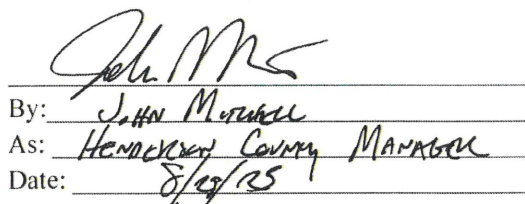 By: John Mitchell
As: Henderson County Manager
Date: 8/29/25